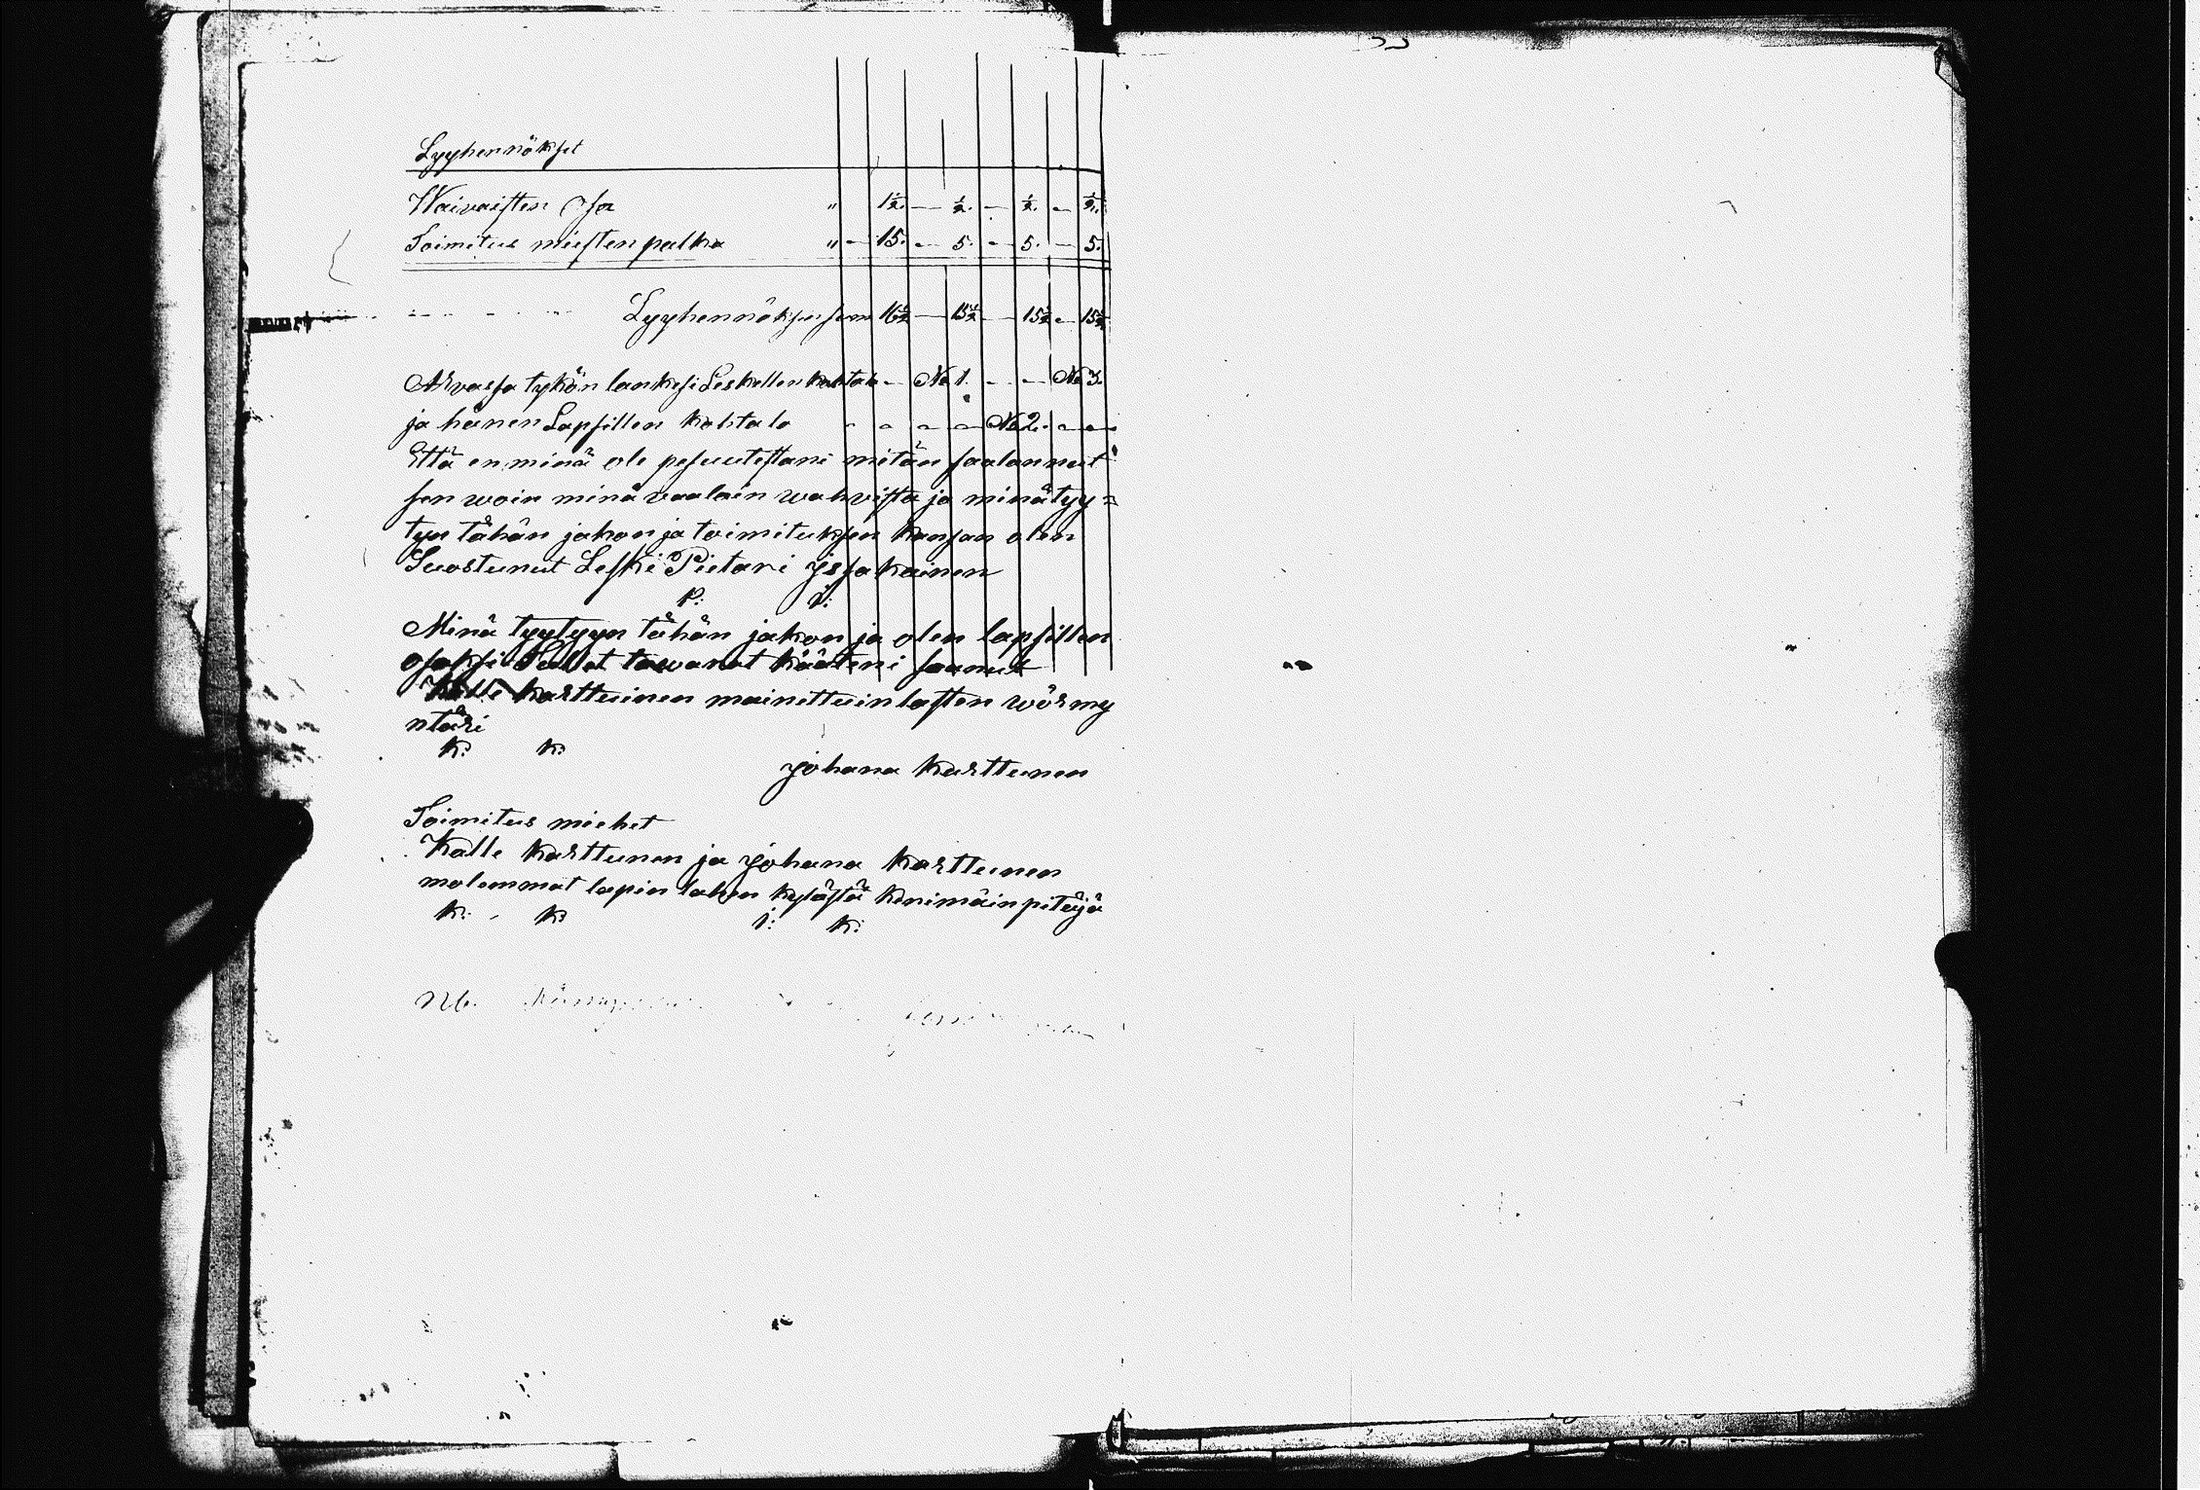 Lyyhennökset
Waivaisten Osa " 1½. — ½. — ½. — ½.
Toimitus miesten palka " — 15. — 5. — 5. — 5.
Lyyhennöksen sum 16½ — 15½ — 15½ — 15½
Arvassa tykön lankesi Leskellen kohtalo — No 1. — — No 3.
ja hänen Lapsillen kohtalo - - - - No 2. - -
Että en minä ole pesuutestani mitän saalannut
sen woin minä vaalain wahvista ja minä tyy=
tyn tähän jakon ja toimituksen kansan olen
Suostunut Leski Pietari yssakainen
P: i:
Minä tyytyyn tähän jakon ja olen lapsillen
osaksi tawarat kääteni saanut
Kalle karttuinen mainettuin lasten wörmy
ntäri
K: K:
johana karttunen
Toimitus miehet
Kalle karttunen ja johana karttunen
molemmat lapin lahen kylästä kirimäin pitäjä
K: - K: i: K:
Nb.